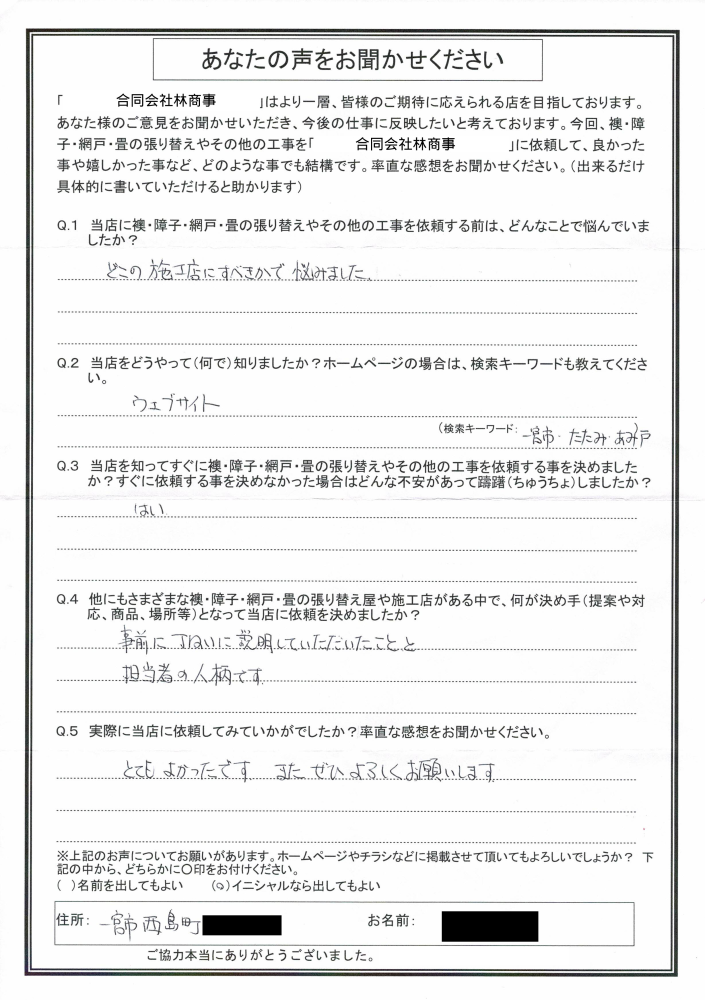 あなたの声をお聞かせください
「　合同会社林商事　」はより一層、皆様のご期待に応えられる店を目指しております。
あなた様のご意見をお聞かせいただき、今後の仕事に反映したいと考えております。今回、襖・障
子・網戸・畳の張り替えやその他の工事を「　合同会社林商事　」に依頼して、良かった
事や嬉しかった事など、どのような事でも結構です。率直な感想をお聞かせください。（出来るだけ
具体的に書いていただけると助かります）
Q.1 当店に襖・障子・網戸・畳の張り替えやその他の工事を依頼する前は、どんなことで悩んでいま
したか？
どこの施工店にすべきかで悩みました。
Q.2 当店をどうやって(何で)知りましたか？ホームページの場合は、検索キーワードも教えてくださ
い。
ウェブサイト
（検索キーワード： 一宮市・たたみ・あみ戸）
Q.3 当店を知ってすぐに襖・障子・網戸・畳の張り替えやその他の工事を依頼する事を決めました
か？すぐに依頼する事を決めなかった場合はどんな不安があって躊躇（ちゅうちょ）しましたか？
はい
Q.4 他にもさまざまな襖・障子・網戸・畳の張り替え屋や施工店がある中で、何が決め手（提案や対
応、商品、場所等）となって当店に依頼を決めましたか？
事前に丁ねいに説明していただいたことと
担当者の人柄です
Q.5 実際に当店に依頼してみていかがでしたか？率直な感想をお聞かせください。
とてもよかったです　またぜひよろしくお願いします
※上記のお声についてお願いがあります。ホームページやチラシなどに掲載させて頂いてもよろしいでしょうか？ 下
記の中から、どちらかに〇印をお付けください。
（ ）名前を出してもよい　（○）イニシャルなら出してもよい
住所： 一宮市西島町　お名前：
ご協力本当にありがとうございました。